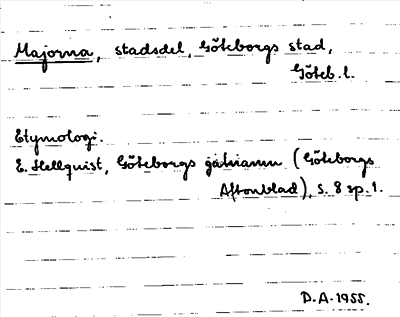 Majorna, stadsdel, Göteborgs stad,
Göteb. l.
Etymologi.
E. Hellquist, Göteborgs gatnamn (Göteborgs
Aftonblad), s. 8 sp. 1.
D.A. 1955.